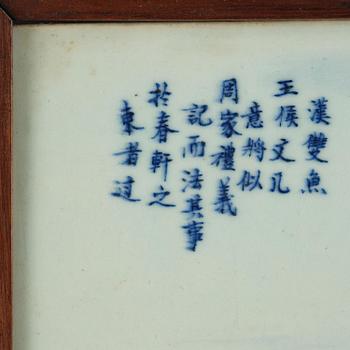 漢雙魚
王侯文几
意將似
周家禮義
記而法其事
於春軒之
東者过